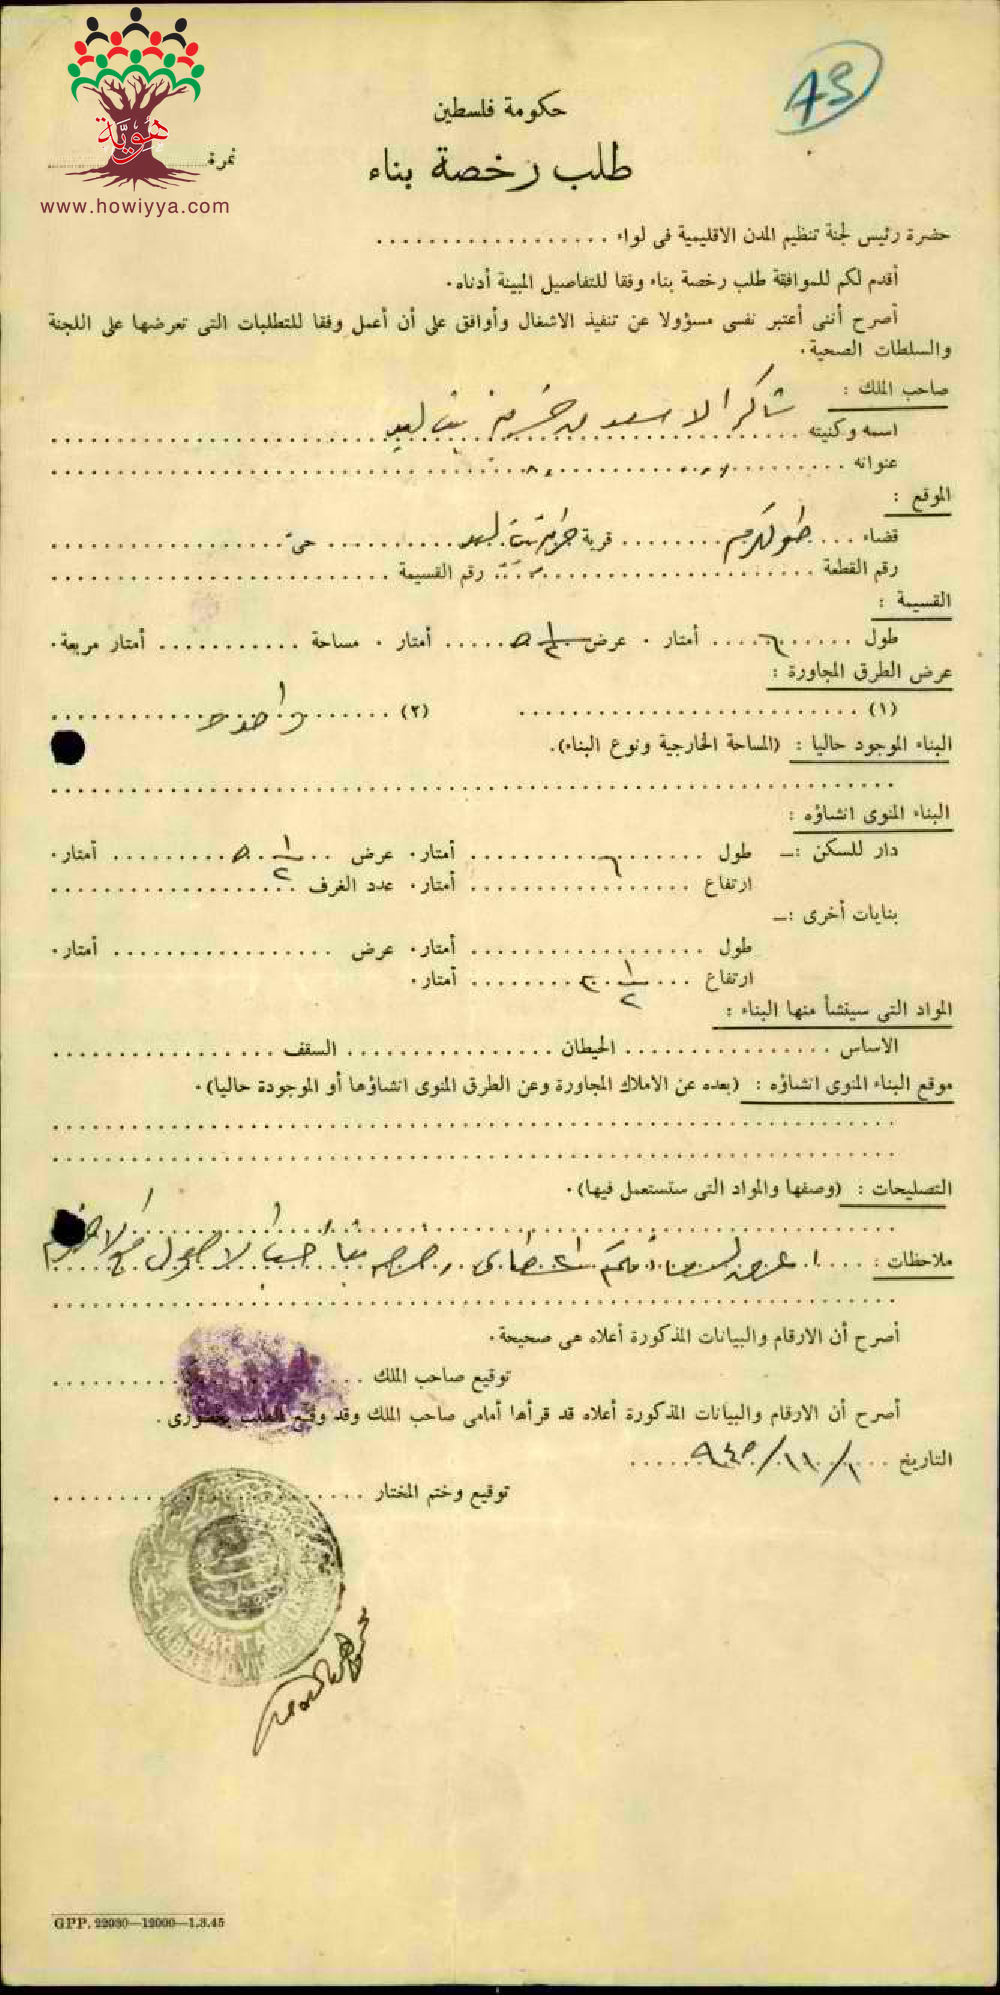 A3
هوية
www.howiyya.com
حكومة فلسطين
طلب رخصة بناء
نمرة
حضرة رئيس لجنة تنظيم المدن الاقليمية فى لواء
أقدم لكم للموافقة طلب رخصة بناء وفقا للتفاصيل المبينة أدناه.
أصرح أننى أعتبر نفسى مسؤولا عن تنفيذ الاشغال وأوافق على أن أعمل وفقا للتطلبات التى تعرضها على اللجنة
والسلطات الصحية.
صاحب الملك :
اسمه وكنيته شاكر الاسعد من خربة بيت ليد
عنوانه
الموقع :
قضاء طولكرم قرية خربة بيت ليد حى
رقم القطعة رقم القسيمة
القسيمة :
طول ٦ أمتار. عرض ٥ ١/٢ أمتار. مساحة أمتار مربعة.
عرض الطرق المجاورة :
(١) (٢)
البناء الموجود حاليا : (المساحة الخارجية ونوع البناء).
البناء المنوى انشاؤه :
دار للسكن :ـ طول ٦ أمتار. عرض ٥ ١/٢ أمتار.
ارتفاع أمتار. عدد الغرف
بنايات أخرى :ـ
طول أمتار. عرض أمتار.
ارتفاع ٣ ١/٢ أمتار.
المواد التي سينشأ منها البناء :
الاساس الحيطان السقف
موقع البناء المنوى انشاؤه : (بعده عن الاملاك المجاورة وعن الطرق المنوى انشاؤها أو الموجودة حاليا).
التصليحات : (وصفها والمواد التى ستستعمل فيها).
ملاحظات : رخصة بناء حسب الاصول
أصرح أن الارقام والبيانات المذكورة أعلاه هى صحيحة.
توقيع صاحب الملك
أصرح أن الارقام والبيانات المذكورة أعلاه قد قرأها أمامى صاحب الملك وقد وقع الطلب بحضورى.
التاريخ ١٠/١١/٩٤٥
توقيع وختم المختار
MUKHTAR
GPP. 22030—12000—1.3.45